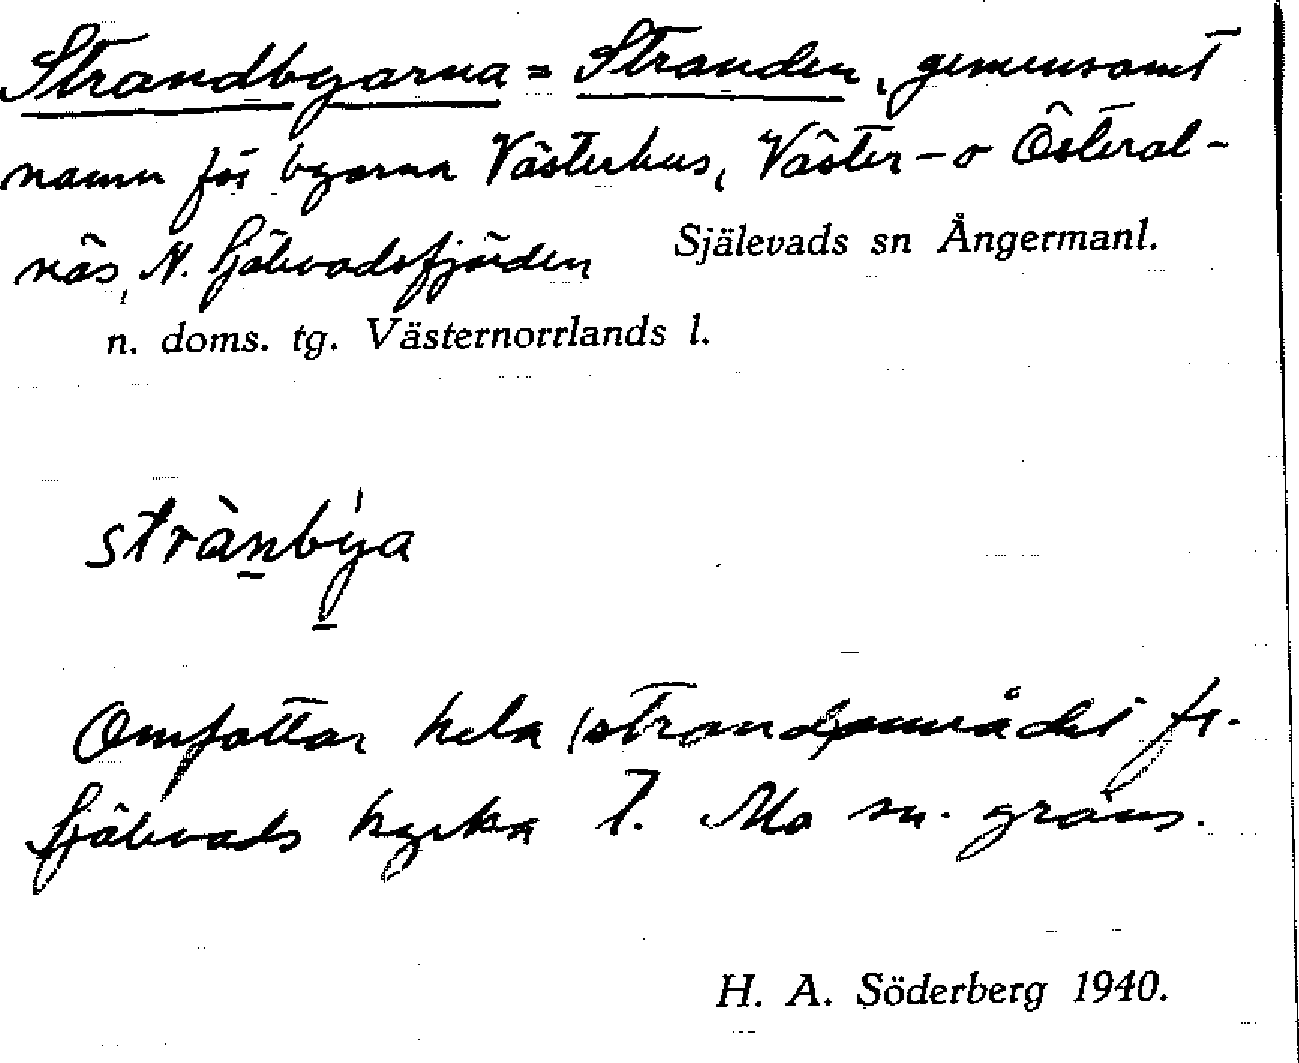 Strandbyarna = Stranden, gemensamt
namn för byarna Västerhus, Väster- o Österal-
näs, N. Själevadsfjärden Själevads sn Ångermanl.
n. doms. tg. Västernorrlands l.
strànby̱a
Omfattar hela strandområdet fr.
Själevads kyrka t. Mo sn. gräns.
H. A. Söderberg 1940.